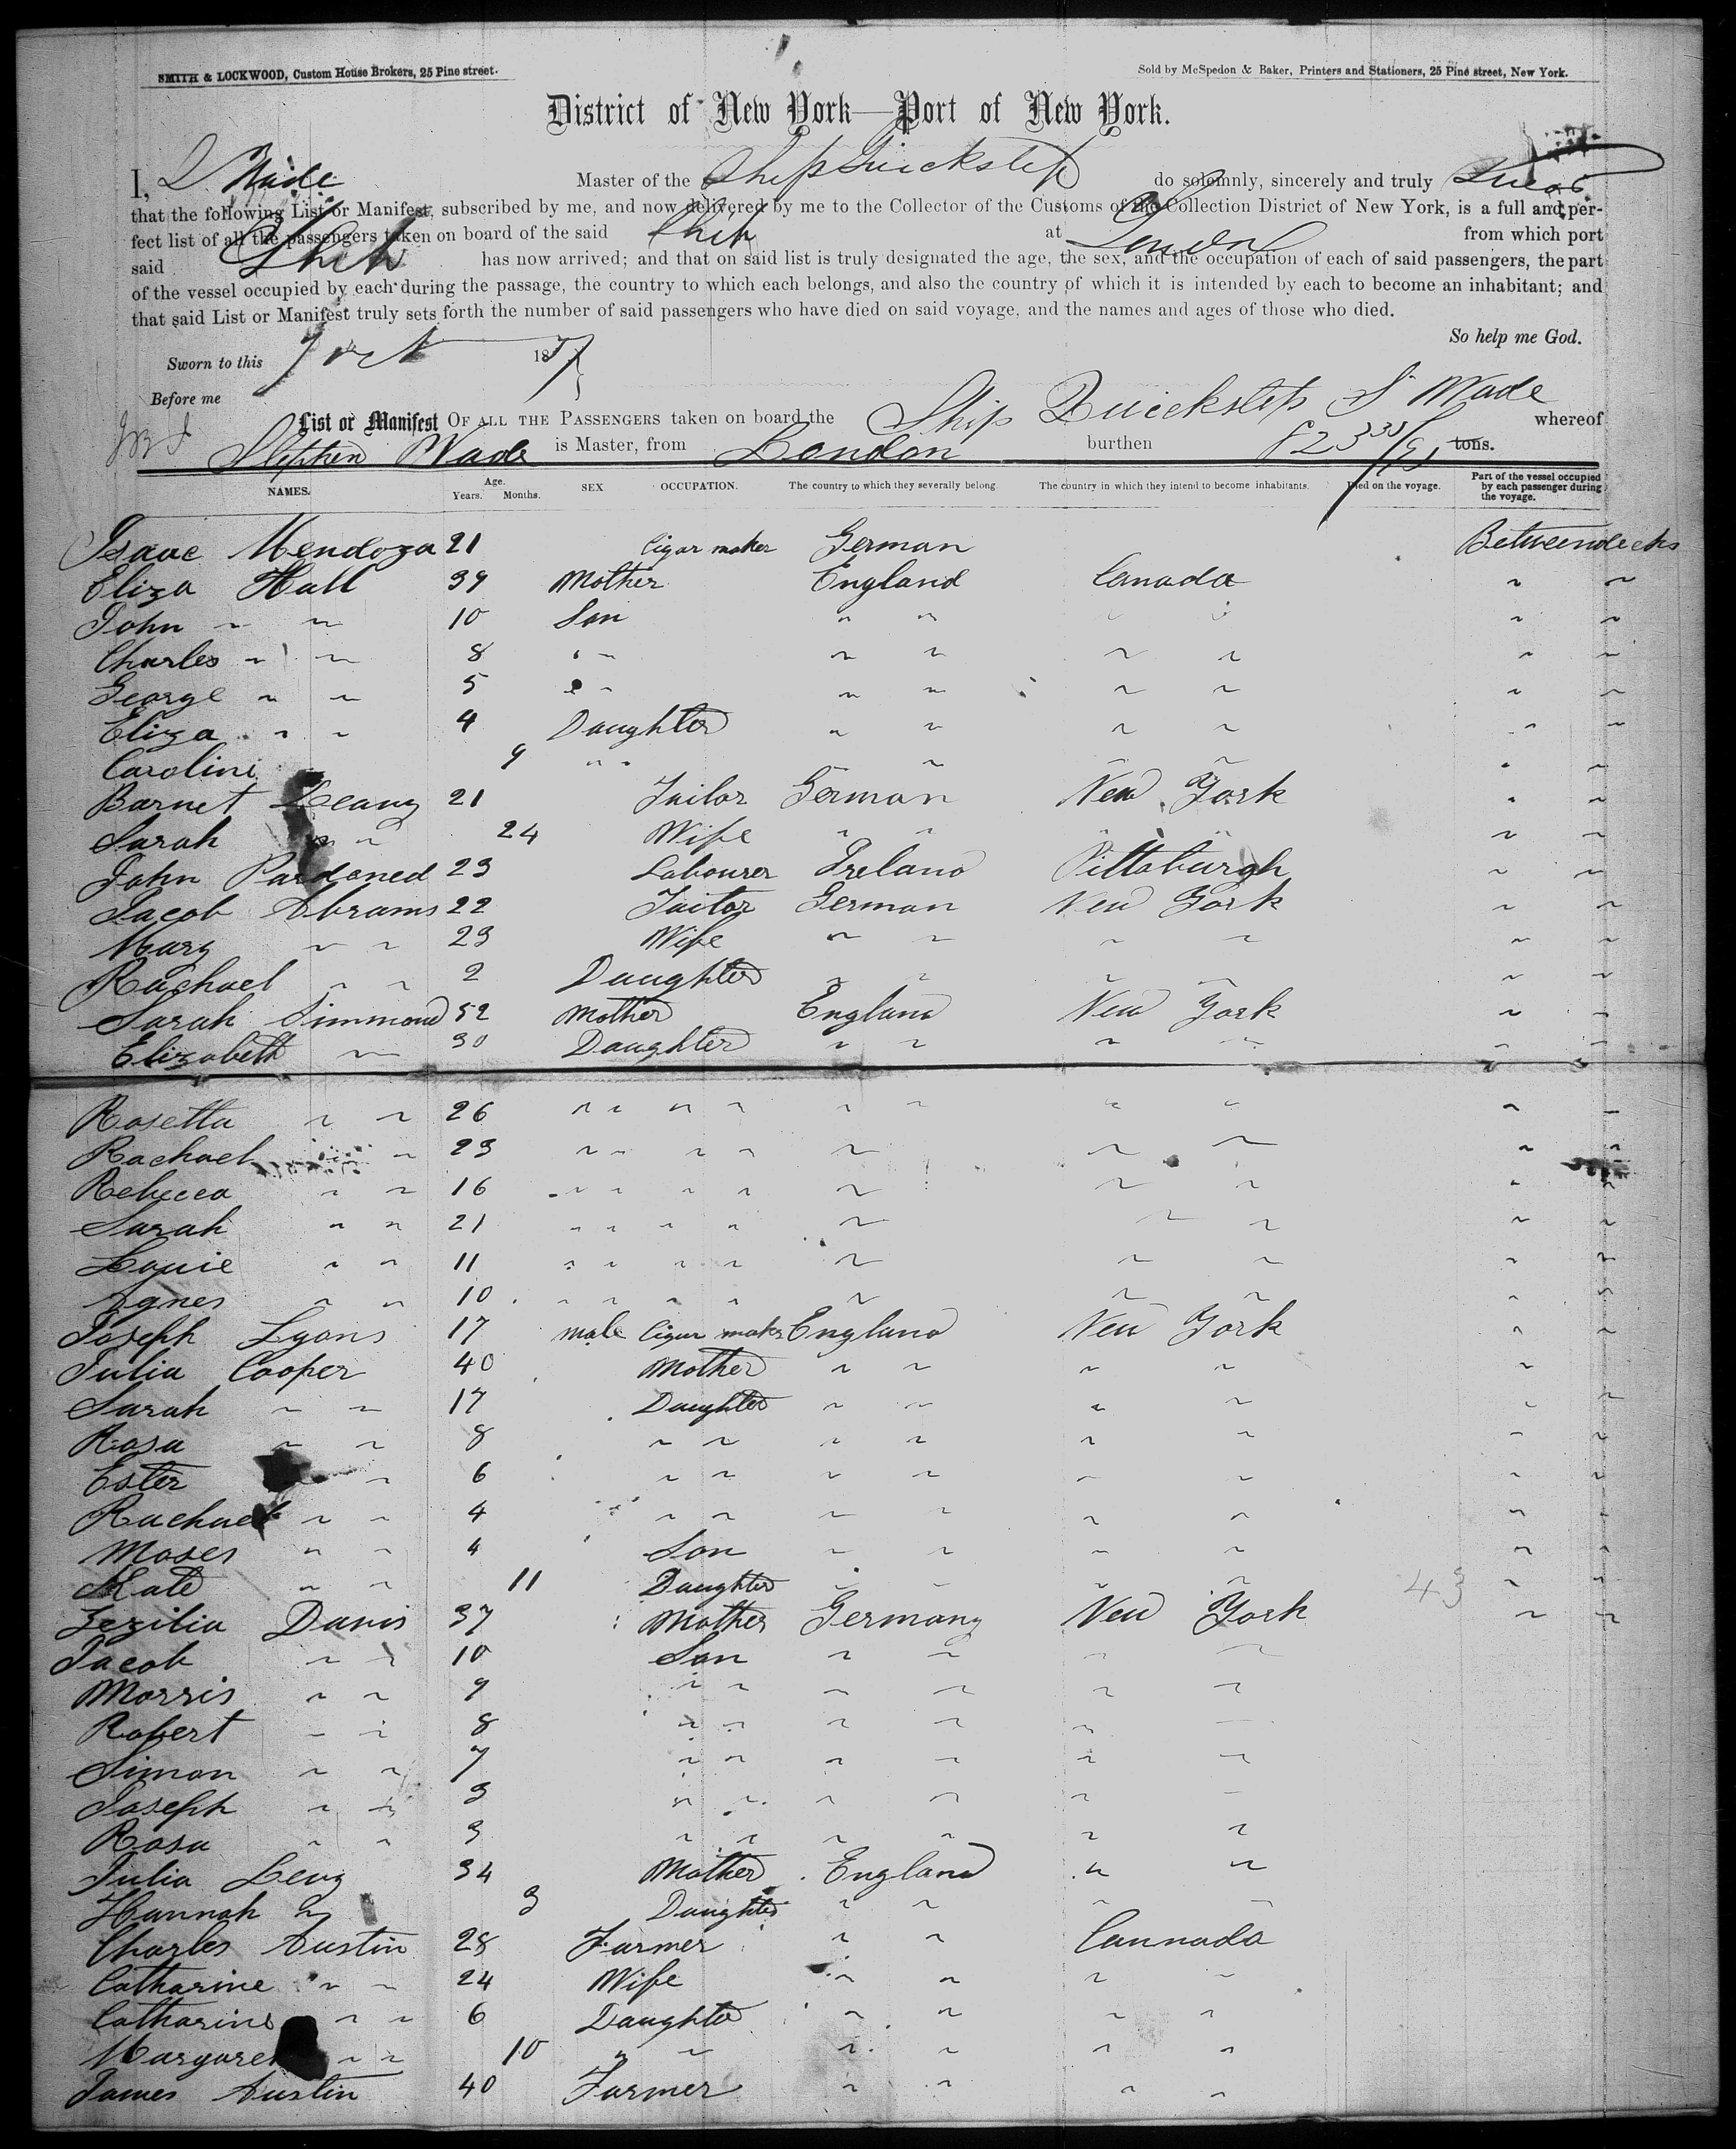 SMITH & LOCKWOOD, Custom House Brokers, 25 Pine street.
Sold by McSpedon & Baker, Printers and Stationers, 25 Pine street, New York.
District of New York—Port of New York.
I, S Wade Master of the Ship Quickstep do solemnly, sincerely and truly Swear
that the following List or Manifest, subscribed by me, and now delivered by me to the Collector of the Customs of the Collection District of New York, is a full and per-
fect list of all the passengers taken on board of the said Ship at London from which port
said Ship has now arrived; and that on said list is truly designated the age, the sex, and the occupation of each of said passengers, the part
of the vessel occupied by each during the passage, the country to which each belongs, and also the country of which it is intended by each to become an inhabitant; and
that said List or Manifest truly sets forth the number of said passengers who have died on said voyage, and the names and ages of those who died.
So help me God.
Sworn to this 7 Oct 1857
Before me
List or Manifest OF ALL THE PASSENGERS taken on board the Ship Quickstep S Wade whereof
Stephen Wade is Master, from London burthen 823 33/95 tons.
NAMES. Age. Years. Months. SEX OCCUPATION. The country to which they severally belong. The country in which they intend to become inhabitants. Died on the voyage. Part of the vessel occupied by each passenger during the voyage.
Isaac Mendoza 21 Cigar maker German Betweendecks
Eliza Hall 39 Mother England Canada " "
John " " 10 Son " " " " " "
Charles " " 8 " " " " " " " "
George " " 5 " " " " " " " "
Eliza " " 4 Daughter " " " " " "
Caroline 9 " " " " " " "
Barnet Leavy 21 Tailor German New York " "
Sarah " " 24 Wife " " " " " "
John Pardoned 23 Labourer Ireland Pittsburgh " "
Jacob Abrams 22 Tailor German New York " "
Mary " " 23 Wife " " " " " "
Rachael " " 2 Daughter " " " " " "
Sarah Simmond 52 Mother England New York " "
Elizabeth " 30 Daughter " " " " " "
Rosetta " " 26 " " " " " " " " " "
Rachael " " 23 " " " " " " " " "
Rebecca " " 16 " " " " " " " " "
Sarah " " 21 " " " " " " " " "
Louie " " 11 " " " " " " " " "
Agnes " " 10 " " " " " " " " "
Joseph Lyons 17 male Cigar maker England New York " "
Julia Cooper 40 Mother " " " " "
Sarah " " 17 Daughter " " " " " "
Rosa " " 8 " " " " " " " "
Ester " " 6 " " " " " " " "
Rachael " " 4 " " " " " " " "
Moses " " 4 Son " " " " " "
Kate " " 11 Daughter " " " " 43 " "
Zezilia Davis 37 Mother Germany New York " "
Jacob " " 10 Son " " " "
Morris " " 9 " " " " " "
Robert " " 8 " " " " " "
Simon " " 7 " " " " " "
Joseph " " 3 " " " " " "
Rosa " " 3 " " " " " "
Julia Levy 34 Mother England " "
Hannah " 3 Daughter " " " "
Charles Austin 28 Farmer " " Cannada
Catharine " " 24 Wife " " " "
Catharine " " 6 Daughter " " " "
Margaret " " 10 " " " " " "
James Austin 40 Farmer " " " "